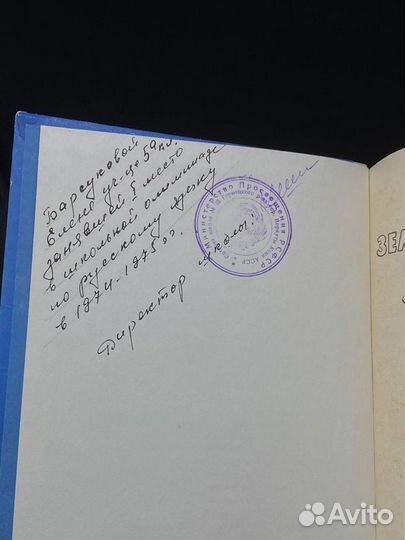 Барсуковой
Елене уч-це 5а кл.
занявшей I место
в школьной олимпиаде
по русскому языку
в 1974-1975 гг.
Директор школы:
Министерство Просвещения РСФСР
ЗЕМ
Avito